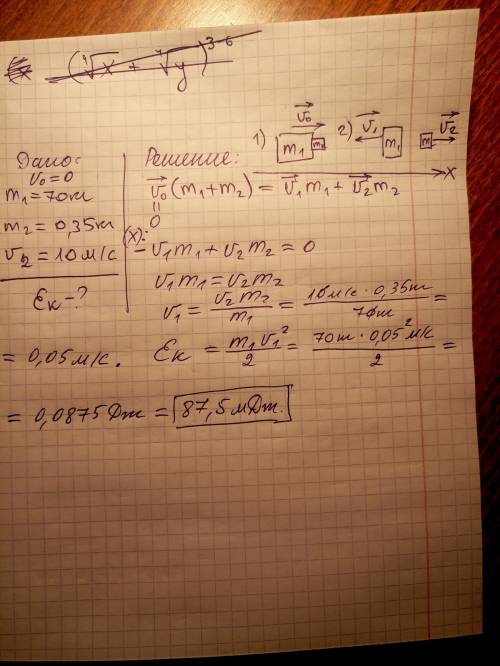 (⁴√x + ⁷√y)³⁶
Дано:
v₀ = 0
m₁ = 70кг
m₂ = 0,35кг
v₂ = 10 м/с
Eк - ?
Решение:
1) v⃗₀ m₁ m₂ 2) v⃗₁ m₁ m₂ v⃗₂
x
v⃗₀(m₁+m₂) = v⃗₁m₁ + v⃗₂m₂
"
0
(x): -v₁m₁ + v₂m₂ = 0
v₁m₁ = v₂m₂
v₁ = v₂m₂/m₁ = 10м/с · 0,35кг/70кг =
= 0,05 м/с. Eк = m₁v₁²/2 = 70кг · 0,05² м/с/2 =
= 0,0875 Дж = 87,5 мДж.